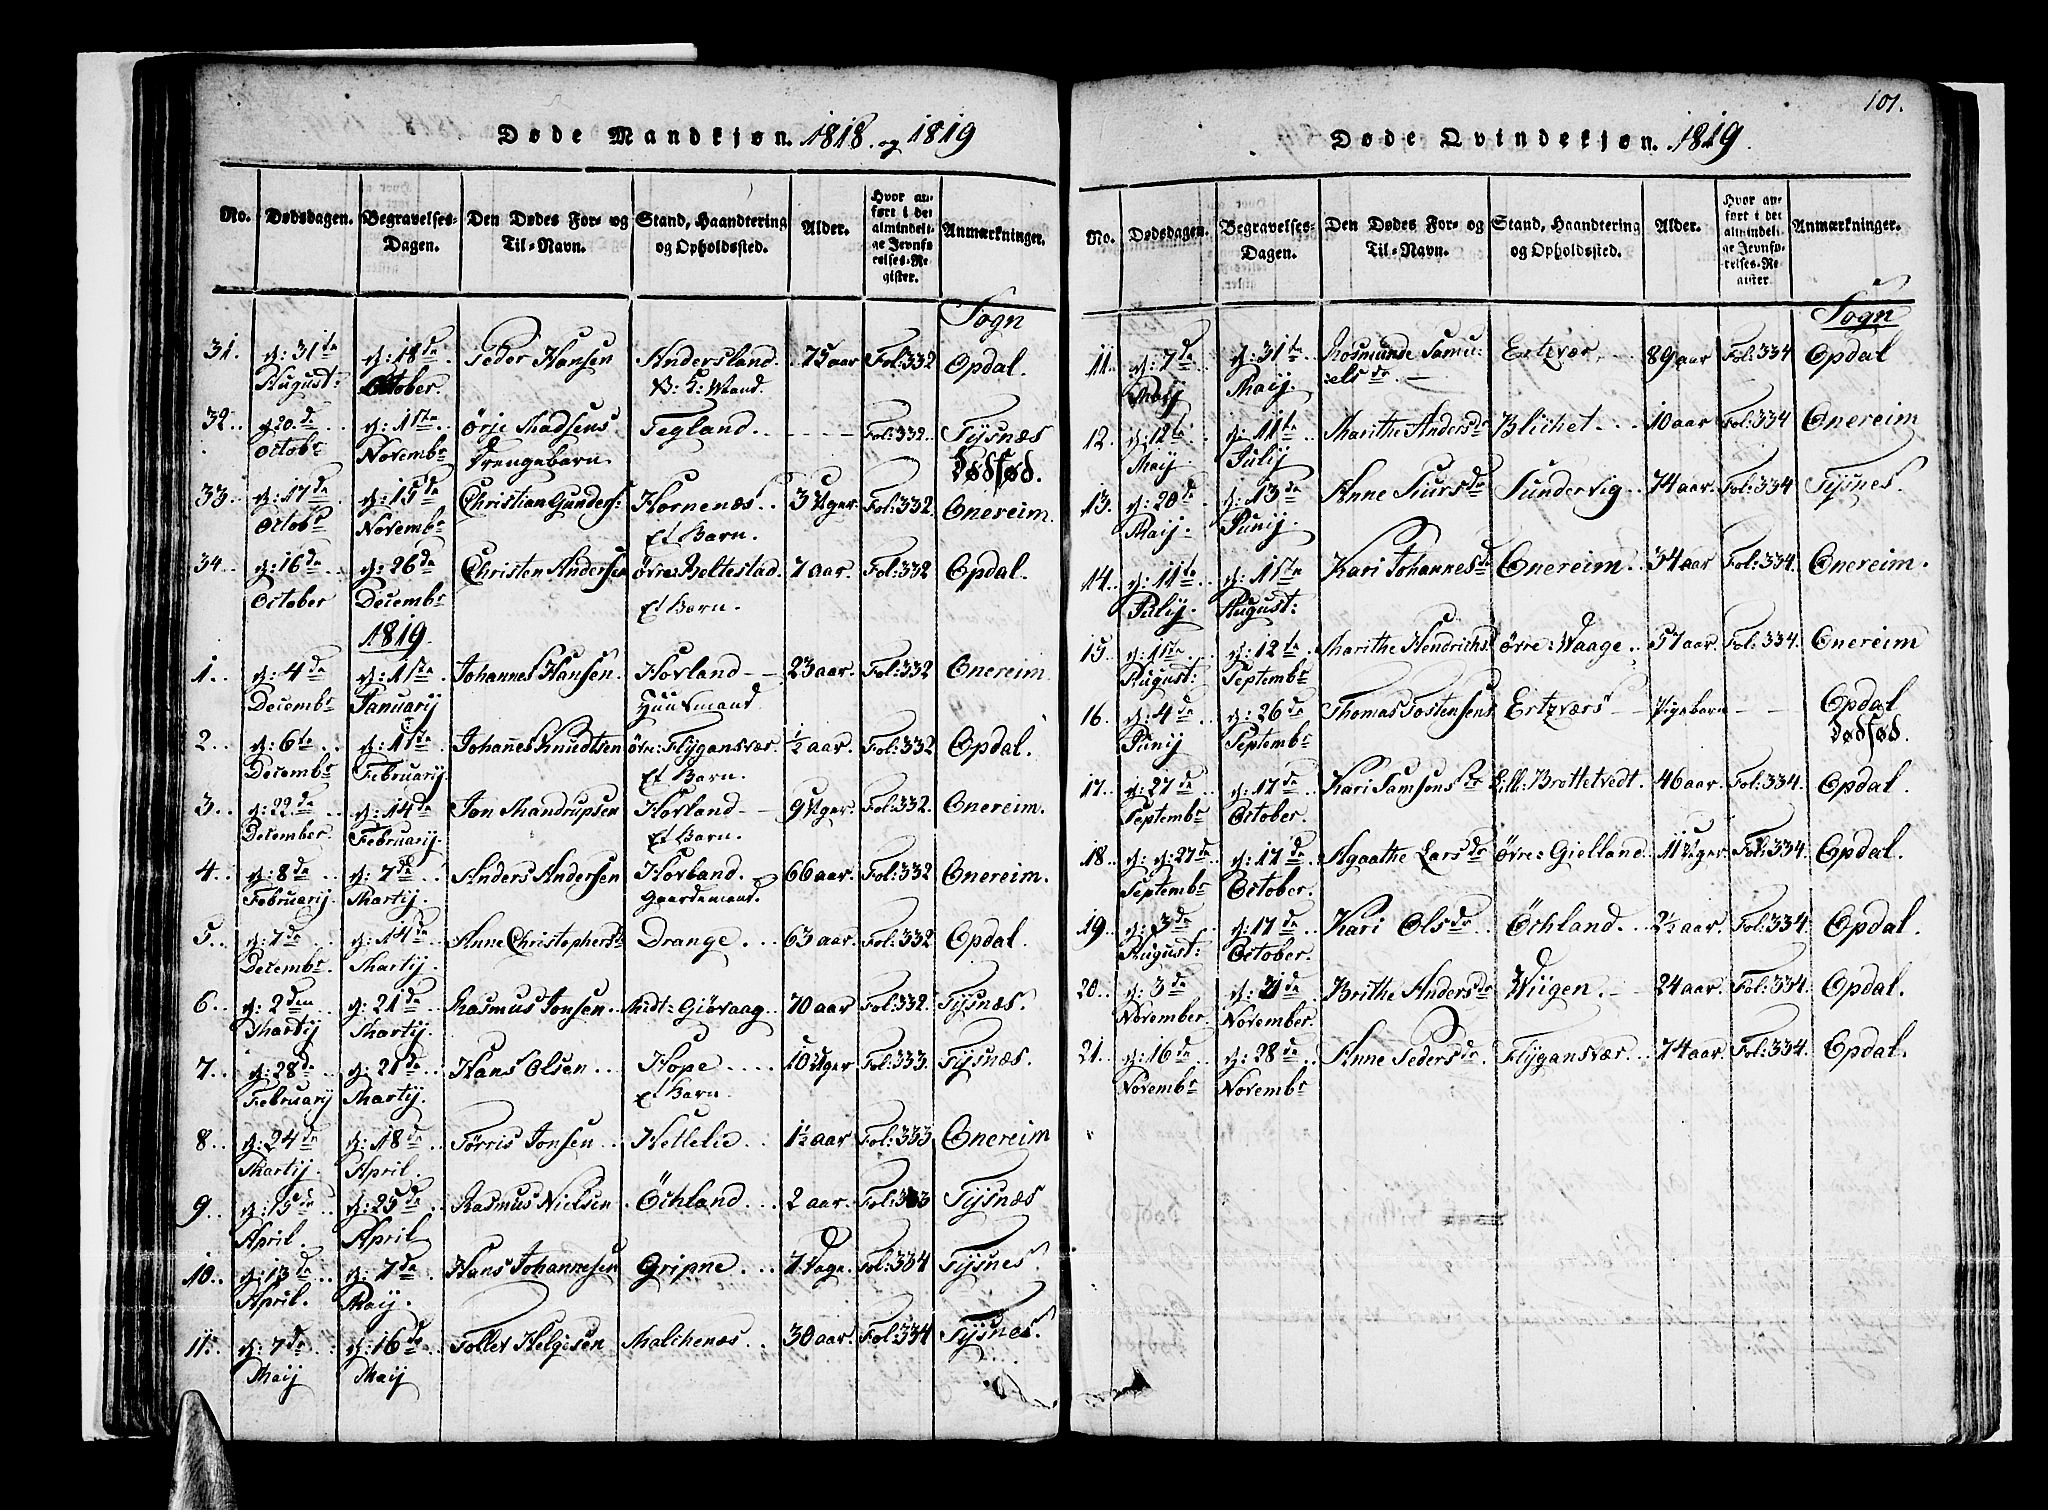 101.
Døde Mandkjøn. 1818. og 1819
No. Dødsdagen. Begravelses-Dagen. Den Dødes For- og Til-Navn. Stand, Haandtering og Opholdssted. Alder. Hvor anført i det almindelige Jevnførelses-Register. Anmærkninger.
Sogn
31. d: 31te August: d: 18de October. Peder Hansen Andersland. 75 aar Fol: 332 Opdal.
32. d 20.de Octobr d: 1ste Novembr Örje Madsens Drengebarn Tegland Fol: 332. Tysnæs Dødfød.
33. d: 17de Octobr d: 15de Novembr Christian Gunders: Hornenæs Et Barn. 3 Uger. Fol: 332. Onereim.
34. d: 16de October d: 26de Decembr Christen Andersen Övre: Beltestad. Et Barn. 7 aar. Fol: 332 Opdal.
1819.
1. d: 4de Decembr d: 1ste Januarij Johannes Hansen. Hovland Huusmand 23 aar. Fol: 332 Onereim.
2. d: 6te Decembr d: 1ste Februarij. Johannes Knudtsen övre: Flygansvær. Et Barn. ½ aar. Fol: 332 Opdal.
3. d: 22de December. d: 14de Februarij Jon Mandrupsen Hovland Et Barn. 9 Uger. Fol: 332. Onereim.
4. d: 8de Februarij. d: 7de Martij. Anders Andersen Hovland. Gaardemand. 66 aar. Fol: 332 Onereim.
5. d: 7de Decembr. d: 14de Martij. Anne Christophersd Drange. 63 aar. Fol: 332 Opdal.
6. d: 2den Martij d: 21de Martij. Rasmus Jonsen Midt: Giövaag. 70 aar Fol: 332. Tysnæs.
7. d: 28de Februarij d: 21de Martij. Hans Olsen Hope Et Barn. 10 Uger Fol: 333. Tysnæs.
8. d: 24de Martij. d: 18de April. Törris Jonsen Hetlelie 1½ aar Fol: 333 Onereim
9. d: 15de April. d: 25de April Rasmus Nielsen Öchland 2 aar. Fol: 333 Tysnæs
10. d: 13de April. d: 7de Maij. Hans Johannesen Gripne. 7 Dage. Fol: 334 Tysnes.
11. d: 7de Maij d: 16de Maij Tollev Helgesen Malchenæs 30 aar. Fol: 334 Tysnes.
Døde Qvindekjøn. 1819.
No. Dødsdagen. Begravelses-Dagen. Den Dødes For- og Til-Navn. Stand, Haandtering og Opholdssted. Alder. Hvor anført i det almindelige Jevnførelses-Register. Anmærkninger.
Sogn
11. d: 7de Maij d: 31te Maij. Rosmunde Samuelsdr Ertzvær. 89 aar Fol: 334 Opdal
12. d: 12te Maij d: 11te Julij Marithe Andersdr Blichet 10 aar Fol: 334 Onereim
13. d: 20de Maij. d: 13de Junij. Anne Siursdr Sundervig. 74 aar. Fol: 334 Tysnes.
14. d: 11te Julij d: 1ste August: Kari Johannesdr Onereim. 34 aar Fol: 334. Onereim.
15. d: 1ste August: d: 12te Septembr Marithe Hendrichs övre: Waage. 57 aar. Fol: 334. Onereim
16. d: 4de Junij d: 26de Septembr Thomas Tostensens Ertzværs Pigebarn Opdal Dødfød.
17. d: 27de Septembr d: 17de October. Kari Samsonsdr Lill: Brottetvedt. 46 aar. Fol: 334. Opdal.
18. d: d: 27de Septembr d: 17de October. Agaathe Larsdr Övre: Gielland. 11 Uger. Fol: 334. Opdal.
19. d: 3de August: d: 17de October. Kari Olsdr Öchland. 2½ aar. Fol: 334. Opdal.
20. d: 3de November. d: 31de November. Brithe Andersdr Wiigen. 24 aar. Fol: 334. Opdal.
21. d: 16de Novembr d: 28de Novembr Anne Pedersdr Flygansvær. 74 aar. Fol: 334. Opdal.